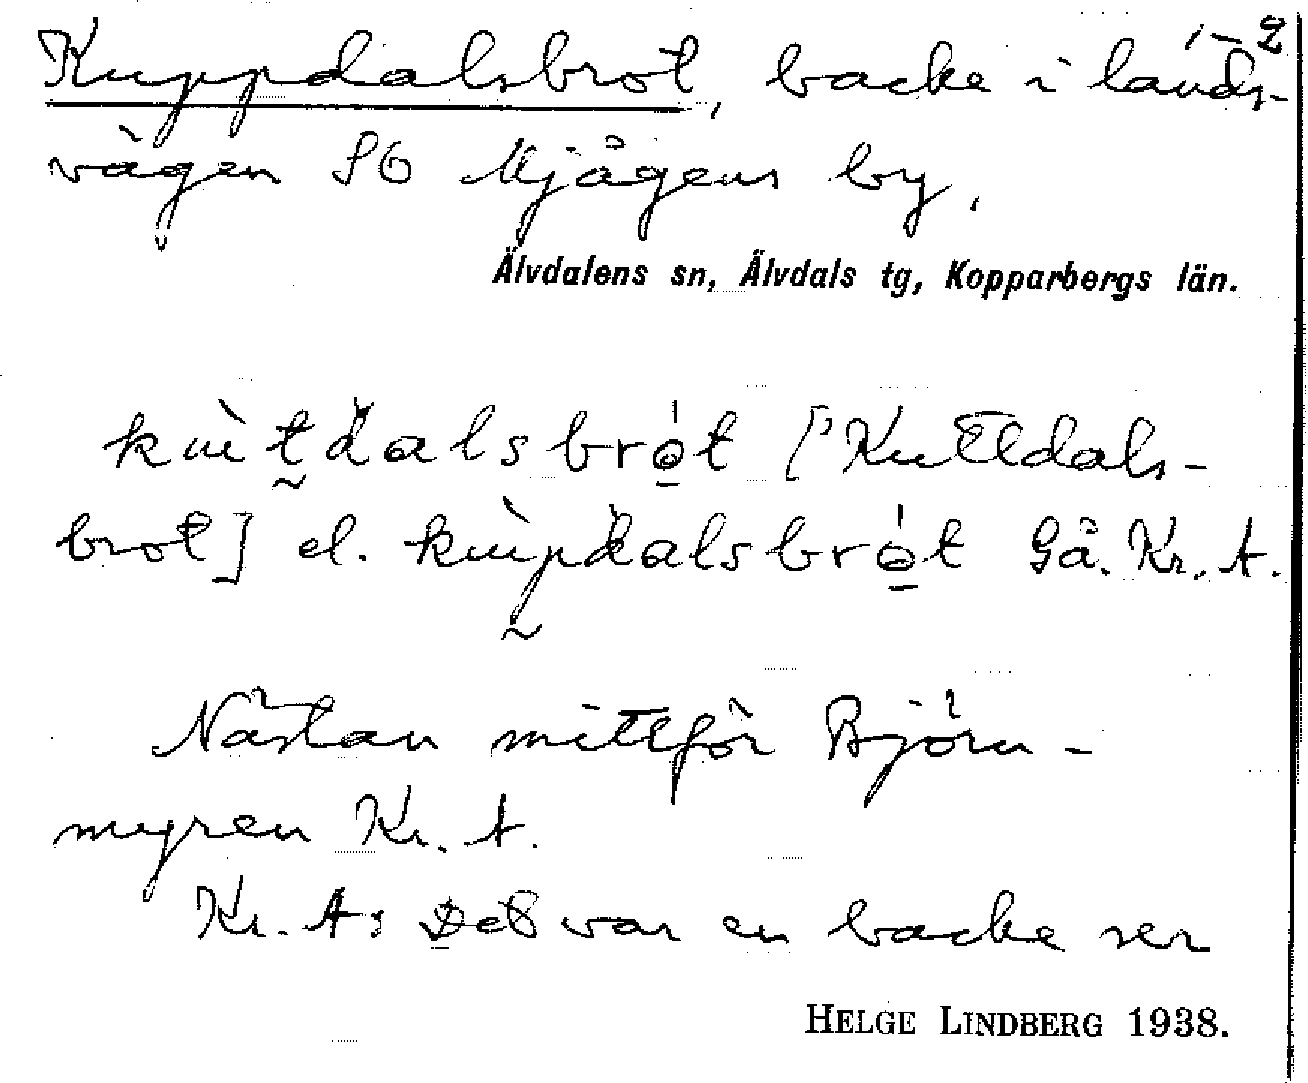 1-2
Kuppdalsbrot, backe i lands-
vägen SO Mjågens by.
Älvdalens sn, Älvdals tg, Kopparbergs län.
kùt̰dalsbrọ́t ['Kuttdals-
brot] el. kùp̰dalsbrọ́t Gå. Kr. A.
Nästan mittför Björn-
myren Kr. A.
Kr. A: Det var en backe ser
HELGE LINDBERG 1938.